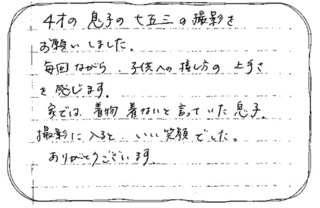 4才の息子の七五三の撮影を
お願いしました。
毎回ながら、子供への接し方の上手さ
を感じます。
家では、着物 着ないと言っていた息子
撮影に入ると、いい笑顔でした。
ありがとうございます